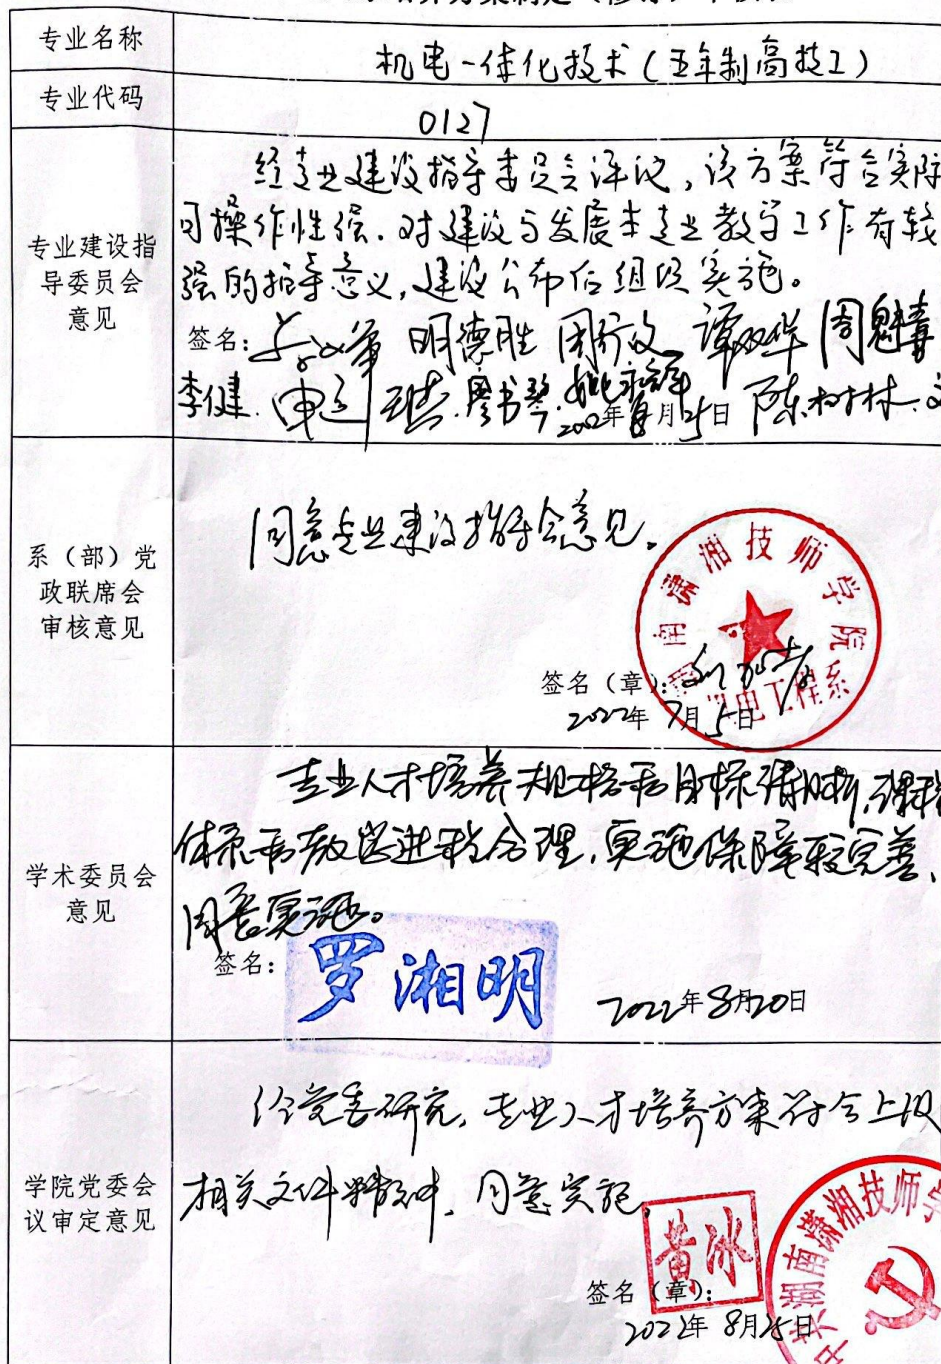 专业名称
机电一体化技术(五年制高技工)
专业代码
0127
专业建设指
导委员会
意见
经专业建设指导委员会评议,该方案符合实际
可操作性强.对建设与发展本专业教学工作有较
强的指导意义,建议公布后组织实施。
签名: 明德胜 谭双华 周魁喜
李健. 陈树林.
2022年 月 日
系(部)党
政联席会
审核意见
同意专业建设指导会意见。
湖南潇湘技师学院
机电工程系
签名(章):
2022年7月5日
学术委员会
意见
专业人才培养规格和目标清晰,课程
体系和教学进程合理,实施保障较完善,
同意实施。
签名: 罗湘明
2022年8月20日
学院党委会
议审定意见
经党委研究,专业人才培养方案符合上级
相关文件精神,同意实施,
黄冰
签名(章):
2022年8月25日
中共湖南潇湘技师学